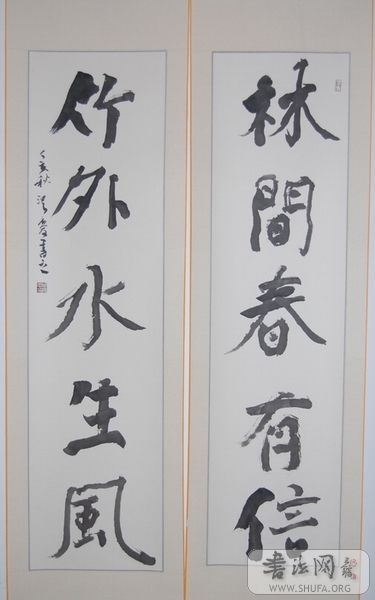 林間春有信
竹外水生風
丁亥秋
書法网
WWW.SHUFA.ORG